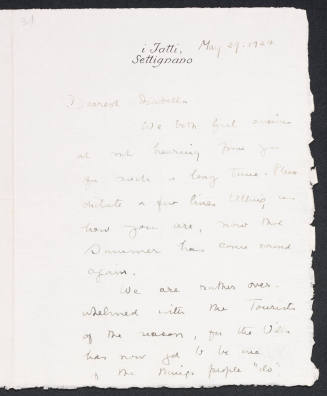 31
i Tatti,
Settignano
May 29. 1924
Dearest Isabella
We both feel anxious
at not hearing from you
for such a long time. Please
dictate a few lines telling us
how you are, now that
Summer has come round
again.
We are rather over-
whelmed with the Tourists
of the season, for the Villa
has now got to be one
of the things people "do"